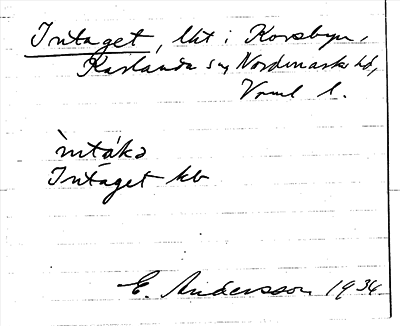 Intaget, lht i Korsbyn,
Karlanda sn, Nordmarks hd,
Vrml l.
ìntákə
Intaget kb
E. Andersson 1934